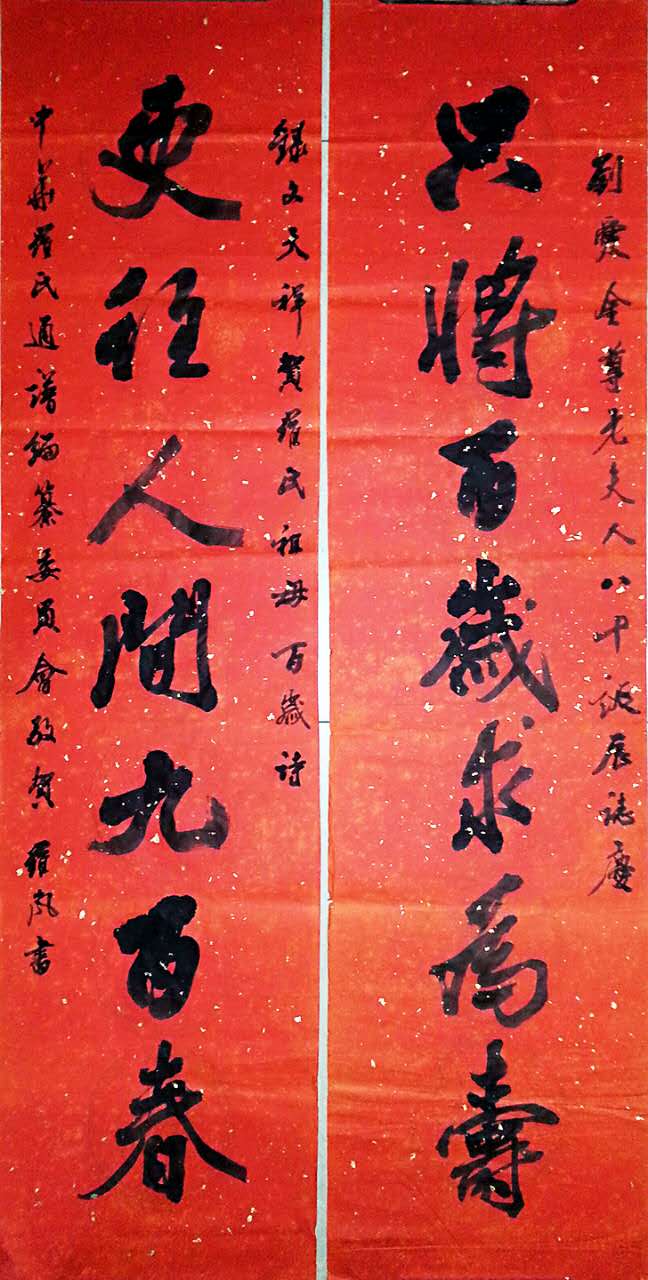 劉愛金尊老夫人八十誕辰誌慶
只將百歲求為壽
錄文天祥賀羅氏祖母百歲詩
更住人間九百春
中華羅氏通譜編纂委員會敬賀 羅書